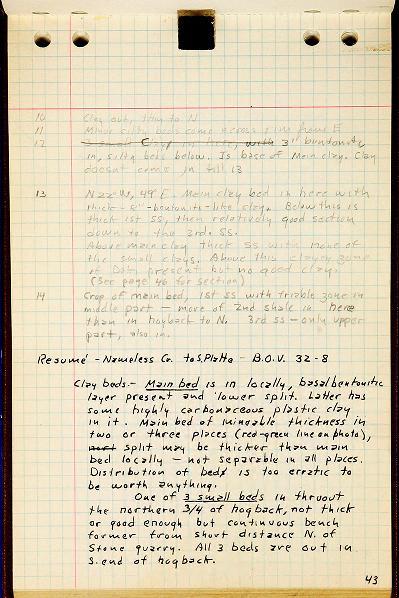 10 Clay out, thin to N
11 Minor silty beds come across from E
12 3 small Clay in here, with 3" bentonite
in, silty beds below. Is base of Main clay. Clay
doesnt come in till 13
13 N22W, 49°E. Main clay bed in here with
thick - 5" - bentonite-like clay. Below this is
thick 1st ss, then relatively good section
down to the 3rd. SS.
Above main clay thick SS with none of
the small clays. Above this clayey zone
of Dktn present but no good clay.
(See page 46 for section)
14 Crop of main bed, 1st SS with friable zone in
middle part - more of 2nd shale in here
than in hogback to N. 3rd ss - only upper
part, also in.
Resumé - Nameless Co. to S.Platte - B.O.V. 32-8
Clay beds.- Main bed is in locally, basal bentonitic
layer present and lower split. Latter has
some highly carbonaceous plastic clay
in it. Main bed of mineable thickness in
two or three places (red-green line on photo),
split may be thicker than main
bed locally - not separable in all places.
Distribution of beds is too erratic to
be worth anything.
One of 3 small beds in thruout
the northern 3/4 of hogback, not thick
or good enough but continuous bench
former from short distance N. of
Stone quarry. All 3 beds are out in
S. end of hogback.
43